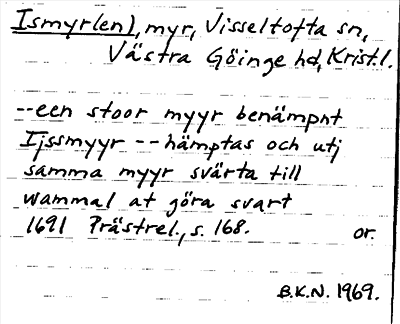 Ismyr(en), myr, Visseltofta sn,
Västra Göinge hd, Krist.l.
--een stoor myyr benämpnt
Ijssmyyr -- hämptas och utj
samma myyr svärta till
wammal at göra svart
1691 Prästrel., s. 168. or.
B.K.N. 1969.